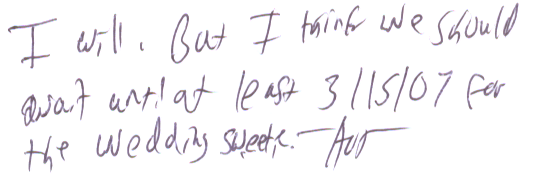 I will. But I think we should
await until at least 3/15/07 for
the wedding sweetie.